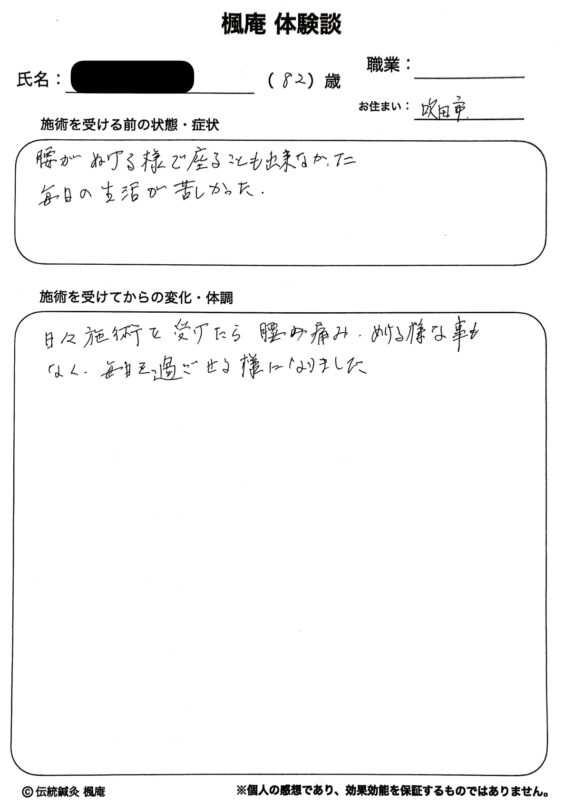 楓庵 体験談
職業：
氏名：　（82）歳
お住まい：吹田市
施術を受ける前の状態・症状
腰がぬける様で座ることも出来なかった
毎日の生活が苦しかった．
施術を受けてからの変化・体調
日々施術を受けたら腰が痛み．ぬける様な事も
なく．毎日を過ごせる様になりました
© 伝統鍼灸 楓庵
※個人の感想であり、効果効能を保証するものではありません。